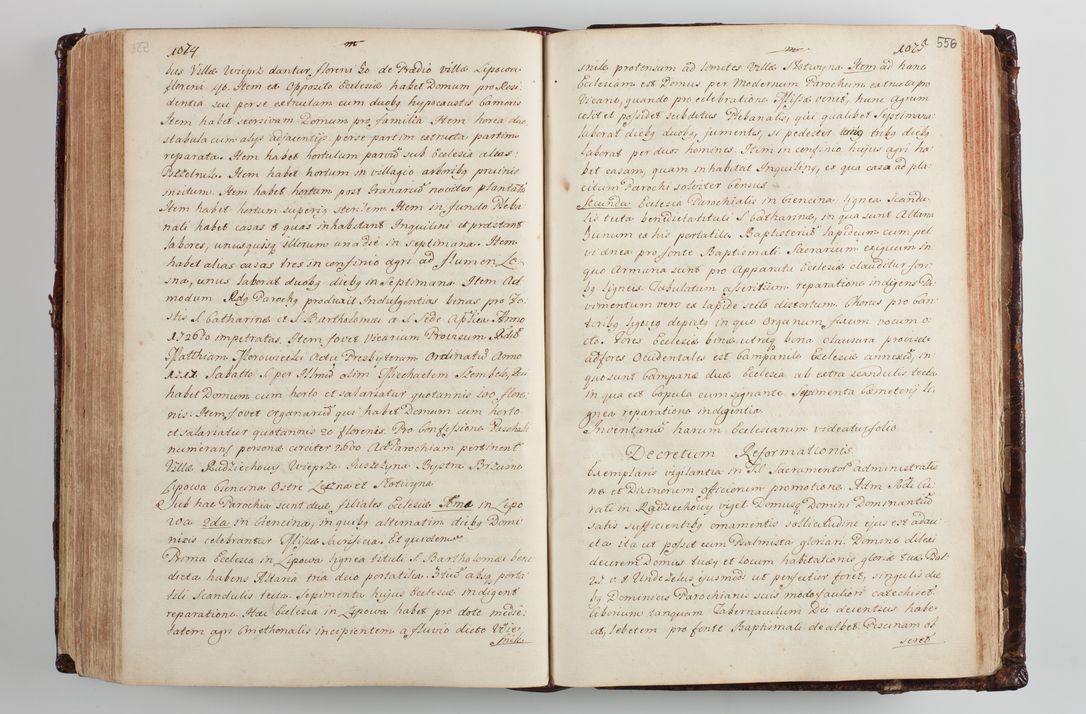 1074
bus Villæ Wieprz dantur floreni 30 de Prædio villæ Lipowa
floreni 40. Item ex Opposito Ecclesiæ habet Domum pro Resi
dentia sui per se extructam cum duobꝫ hypocaustis Cameris
Item habet seorsivam Domum pro familia Item horea duo
stabula cum alys adjacentijs per se partim extructa partim
reparata. Item habet hortulum parvũ sub Ecclesia alias:
Item habet hortum in villagio arboribꝫ pruinis
insitum. Item habet hortum post Granariũ noviter plantatũ
Item habet hortum superiꝫ sterilem. Item in fundo Pleba
nali habet casas 8 quas inhabitant Inquilini et præstant
labores, unusquisqꝫ illorum una die in septimana. Item
habet alias casas tres in confinio agri ad flumen Le
sna, unus laborat duobꝫ diebꝫ in septimana. Item Ad
modum Rdꝫ Parochꝫ produxit Indulgentias binas pro Fe
stis S Catharinæ et S. Bartholomæi a S. Sede Aplica Anno
1726to impetratas. Item fovet Vicarium Provisum Rdũ
Matthiam Morowiecki Actu Presbyterum Ordinatũ Anno
1717 Sabatto S. per Illmũ olim Michaelem Szembek, Qui
habet Domum cum horto et salariatur quotannis 200 flore
nis: Item fovet Organariũ qui habet Domum cum horto
et salariatur quotannis 20 florenis. Pro Confessione Paschali
numerans personæ circiter 2600 Ad Parochiam pertinent
Villæ Radziechowy Wieprz Juszczyna Bystra Brzusno
Lipowa Ciencina Ostre Leszna et Słotwyna
Sub hac Parochia sunt duæ filiales Ecclesiæ 1ma in Lipo
wa 2da in Ciencina, in quibꝫ alternatim diebꝫ Domi
nicis celebrantur Missæ Sacrificia. Et quidem
Prima Ecclesia in Lipowa lignea tituli S. Bartholomæi bene
dicta habens Altaria tria duo portatilia 3tiũ absqꝫ porta
tili Scandulis tecta. Sepimenta hujus Ecclesiæ indigent
reparatione. Hæc Ecclesia in Lipowa habet pro dote medie
tatem agri Cmethonalis incipientem a fluvio dicto Wie
śnik
1075
556
śnik protensum ad limites Villæ Słotwyna Item ad hanc
Ecclesiam est Domus per Modernum Parochum extructa pro
Vicario, quando pro celebratione Missæ venit, hunc Agrum
colit et possidet subditus Plebanalis, qui qualibet septimana
laborat diebꝫ duobꝫ, jumentis, si pedester tribꝫ diebꝫ
laborat per duos homines. Item in confinio hujus agri ha
bet casam, quam inhabitat Inquilinꝫ, ex qua casa ad pla
citum Parochi solviter Census.
Secunda Ecclesia Parochialis in Ciencina lignea Scandu
lis tecta benedicta tituli S. Catharinæ, in qua sunt Altaria
Quinum ex his portatile. Baptisteriũ lapideum cum pel
vi ænea pro fonte Baptismali. Sacrarium exiguum in
quo Armaria sunt pro Apparatu Ecclesiæ clauditur fori
bꝫ ligneis. Tabulatum assentium reparatione indigens Pa
vimentum vero ex lapide secto distortum. Chorus pro can
toribꝫ ligneꝫ depictꝫ in quo Organum fusum vocum o
cto. Fores Ecclesiæ binæ utræqꝫ bona clausura provisæ
ad fores Ocidentales est Campanile Ecclesiæ annexũ, in
quo sunt Campanæ duæ Ecclesia ab extra scandulis tecta
in qua est Copula cum signante. Sepimenta Cæmeterij li
gnea reparatione indigentia.
Inventariũ harum Ecclesiarum videatur folio
Decretum Reformationis.
Exemplaris vigilantia in SS. Sacramentorũ administratio
ne et Divinorum officiorum promotione Adm Rdi Cu
rati in Radziechowy viget Domusqꝫ Domini Dominantiũ
satis sufficientibꝫ ornamentis sollicitudine ejus est adau
cta ita ut possit cum Psalmista gloriari Domine dilexi
decorem Domus tuæ, et locum habitationis gloriæ tuæ Psal
25 v 8 Unde zelus ejusmodi ut perfectior foret, singulis die
bꝫ Dominicis Parochianis suis modo faciliori catechiset
Ciborium tanquam Tabernaculum Dei decentius habe
at, lebetem pro fonte Baptismali dealbet Piscinam ob
seret